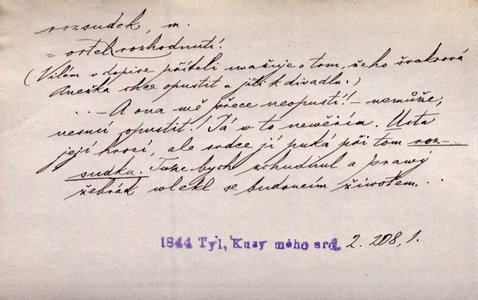 rozsudek, m.
= ortel, rozhodnutí.
(Vilém v dopise příteli uvažuje o tom, že ho švakrová
Anežka chce opustit a jíti k divadlu.)
.. – A ona mě přece neopustí! – nemůže,
nesmí opustit! Já v to nevěřím. Ústa
její hrozí, ale srdce jí puká při tom roz-
sudku. Tuze bych zchudnul a pravý
žebrák vlekl se budoucím životem...
1844 Tyl, Kusy mého srd. 2. 208, 1.